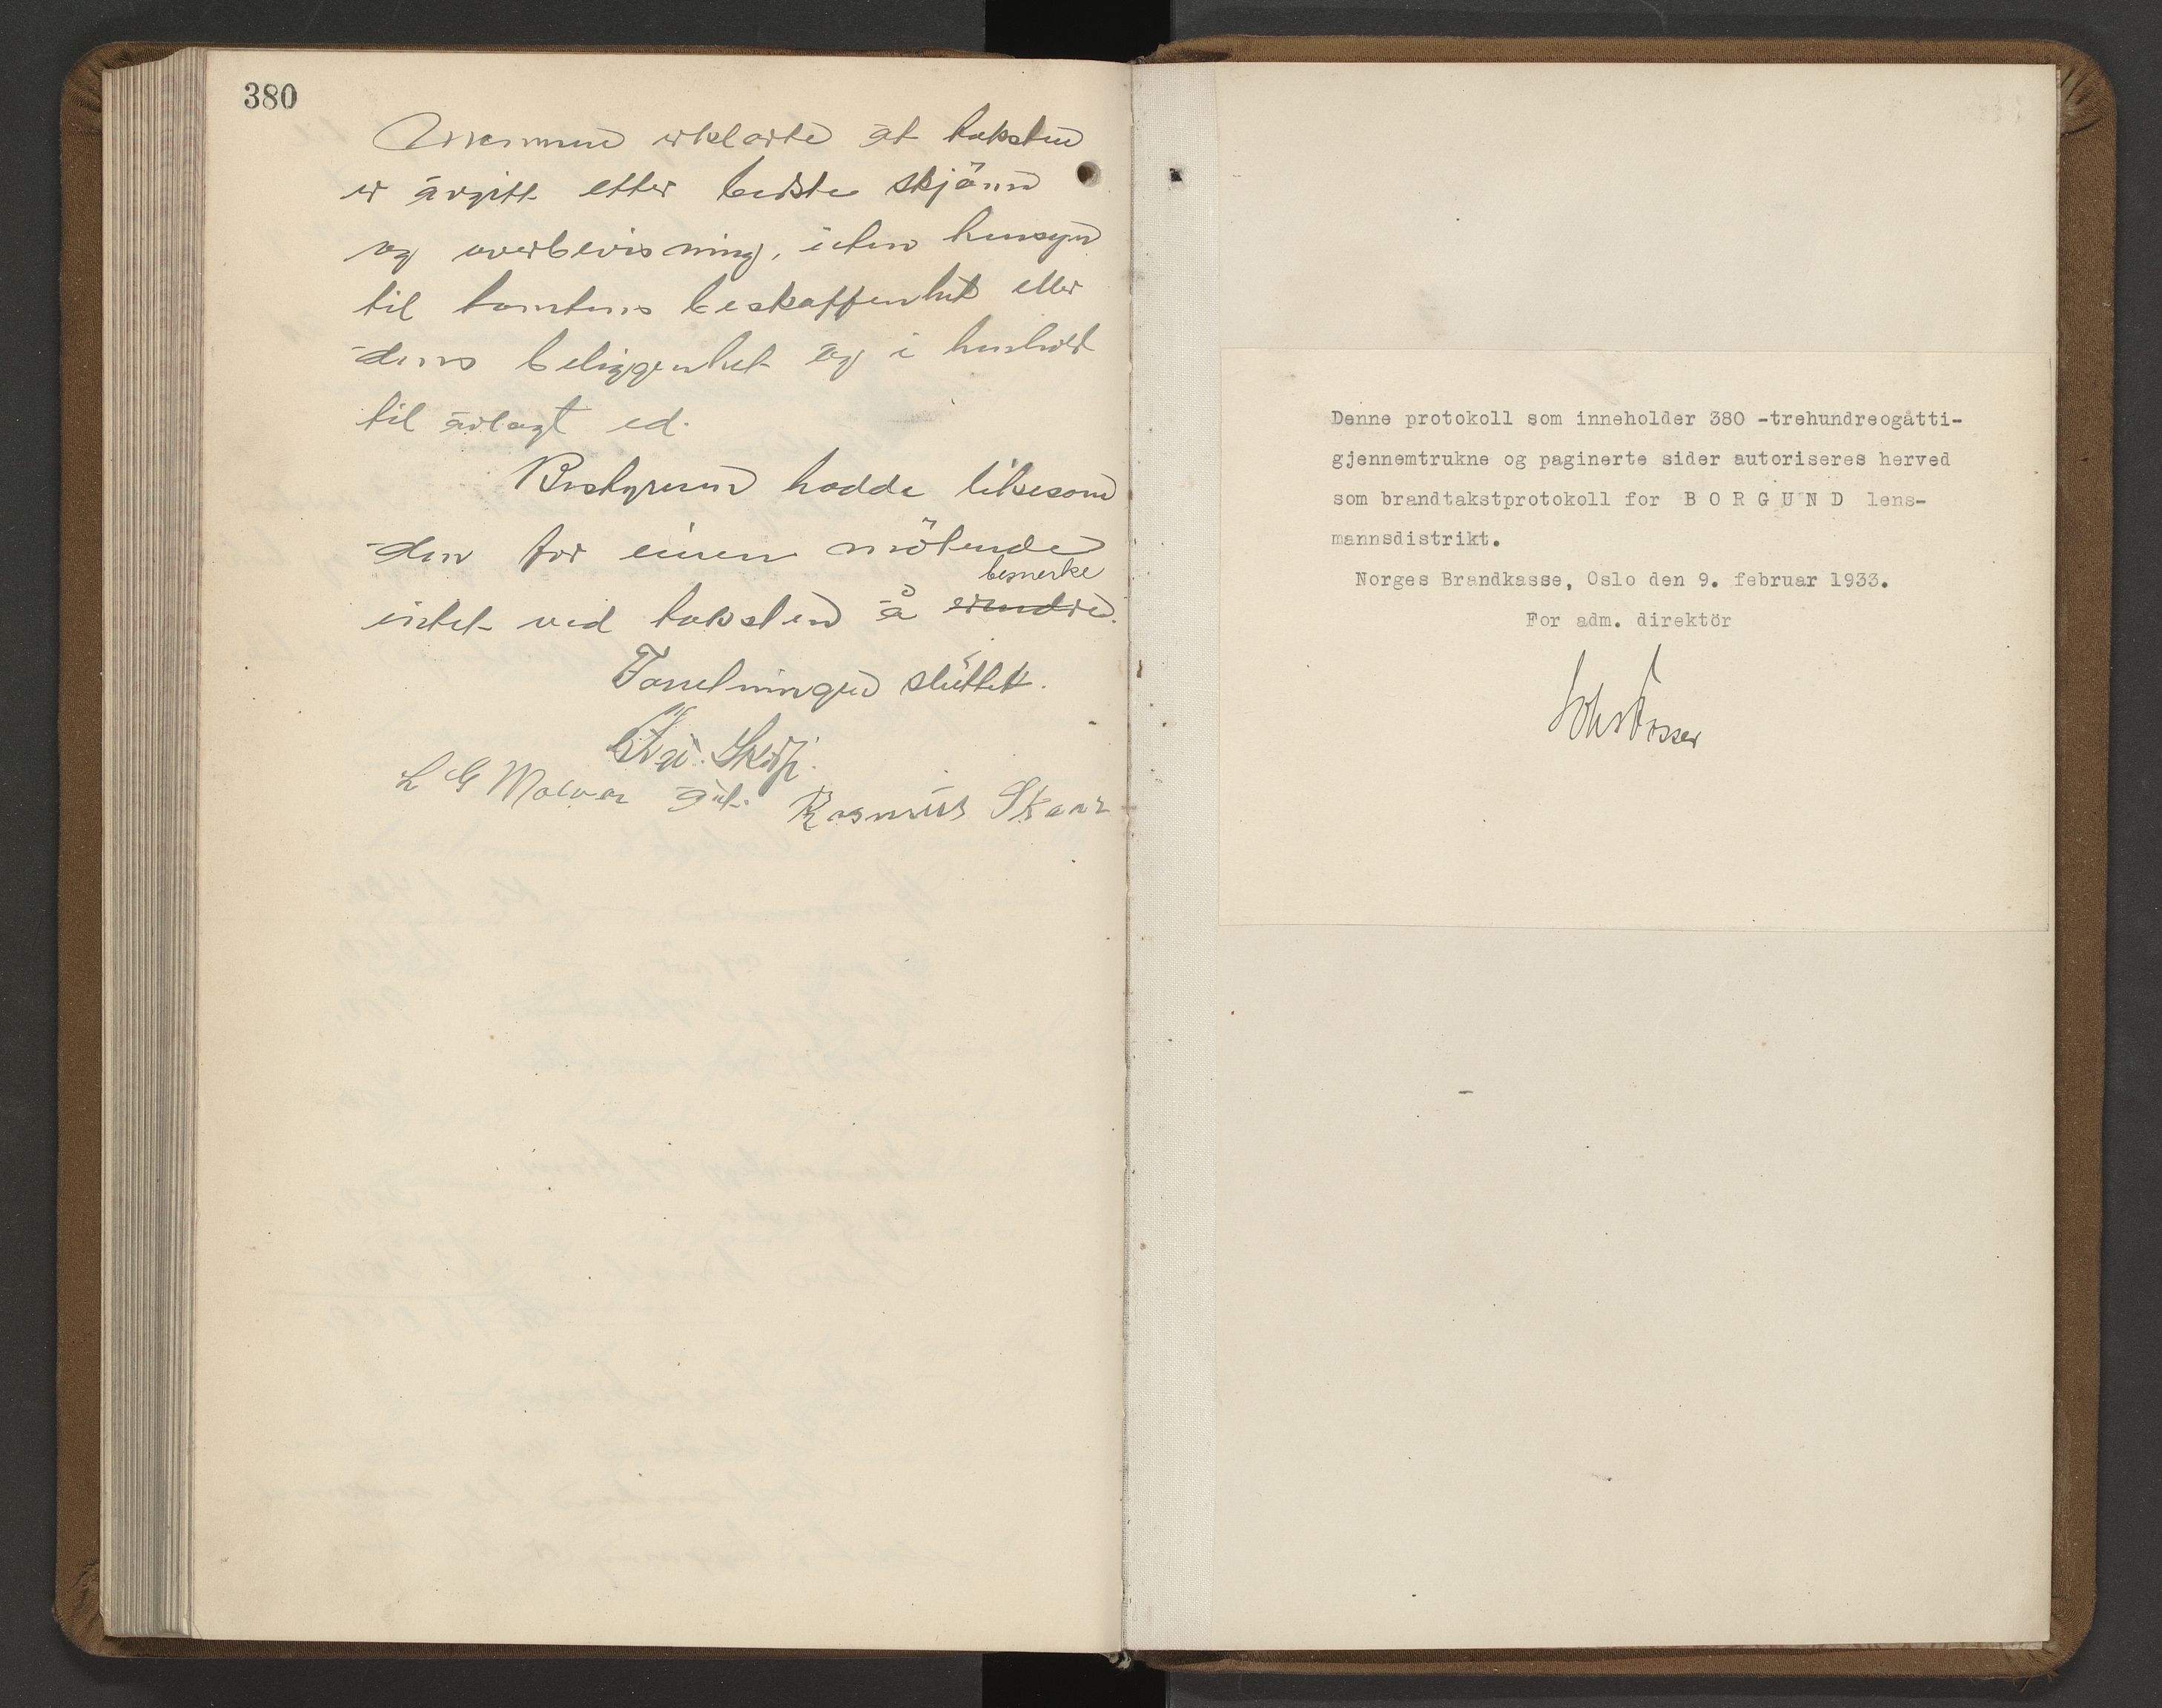 380
Mennene erklærte at taksten
er avgitt efter bedste skjönn
og overbevisning, uten hensyn
til tomtens beskaffenhet eller
dens beliggenhet og i henhold
til avlagt ed.
Bestyreren hadde likesom
den for eieren mötende
bemerke
intet ved taksten å erindre.
Forretningen sluttet.
L G Molvær
Rasmus Skaar
Denne protokoll som inneholder 380 -trehundreogåtti-
gjennemtrukne og paginerte sider autoriseres herved
som brandtakstprotokoll for B O R G U N D lens-
mannsdistrikt.
Norges Brandkasse, Oslo den 9. februar 1933.
For adm. direktör